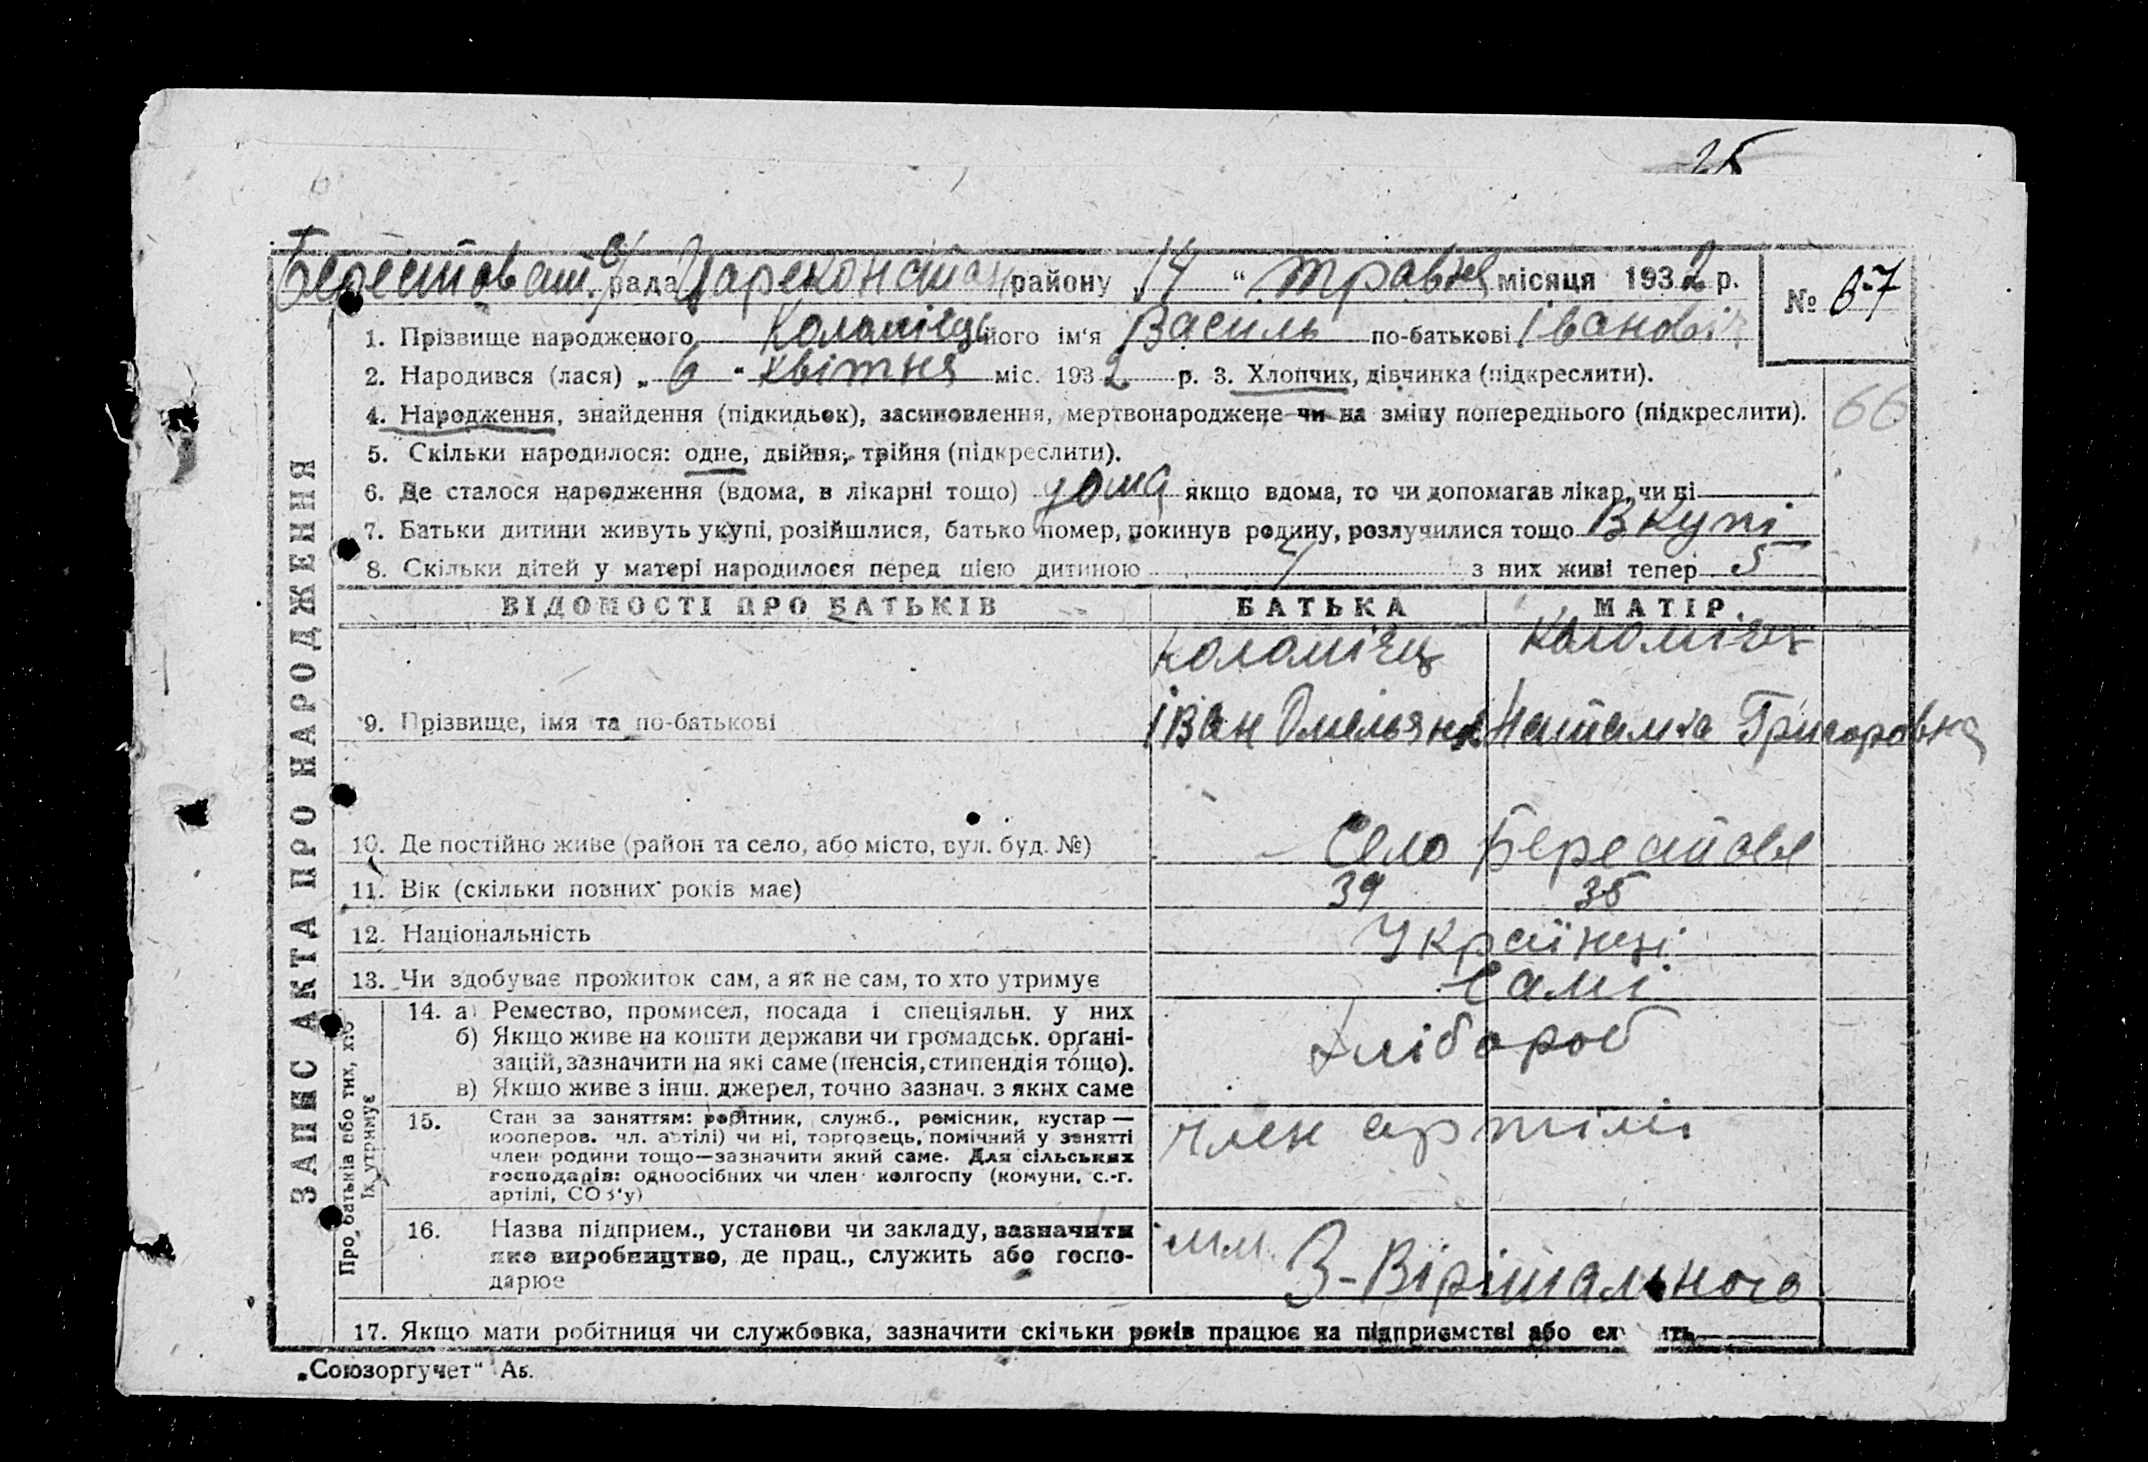 25
Берестоват. с/рада Цареконстан району „14“ травня місяця 1932 р.
№ 67
1. Прізвище народженого Коломієць його ім'я Василь по-батькові Іванович
2. Народився (лася) „6“ квітня міс. 1932 р. 3. Хлопчик, дівчинка (підкреслити).
4. Народження, знайдення (підкидьок), засиновлення, мертвонароджене чи на зміну попереднього (підкреслити).
66
5. Скільки народилося: одне, двійня, трійня (підкреслити).
6. Де сталося народження (вдома, в лікарні тощо) дома якщо вдома, то чи допомагав лікар, чи ні
7. Батьки дитини живуть укупі, розійшлися, батько помер, покинув родину, розлучилися тощо Вкупі
8. Скільки дітей у матері народилося перед цією дитиною 7 з них живі тепер 5
ВІДОМОСТІ ПРО БАТЬКІВ БАТЬКА МАТІР
Коломієць Коломієць
9. Прізвище, імя та по-батькові Іван Омельян Наталка Григоровна
10. Де постійно живе (район та село, або місто, вул. буд. №) Село Берестове
11. Вік (скільки повних років має) 39 35
12. Національність Українці
13. Чи здобуває прожиток сам, а як не сам, то хто утримує Самі
14. а) Ремество, промисел, посада і спеціяльн. у них
б) Якщо живе на кошти держави чи громадськ. органі-
зацій, зазначити на які саме (пенсія, стипендія тощо). Хлібороб
в) Якщо живе з інш. джерел, точно зазнач. з яких саме
15. Стан за заняттям: робітник, служб., ремісник, кустар —
кооперов. чл. артілі) чи ні, торговець, помічний у занятті
член родини тощо—зазначити який саме. Для сільських
господарів: одноосібних чи член колгоспу (комуни, с.-г.
артілі, СОЗ'у) член артілі
16. Назва підприєм., установи чи закладу, зазначити
яке виробництво, де прац., служить або госпо-
дарює
17. Якщо мати робітниця чи службовка, зазначити скільки років працює на підприємстві або служить
ЗАПИС АКТА ПРО НАРОДЖЕННЯ
Про батьків або тих, хто
їх утримує
„Союзоргучет“ Аб.